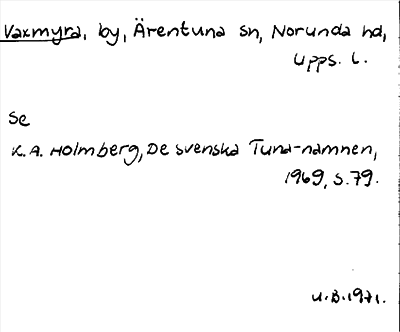 Vaxmyra, by, Ärentuna sn, Norunda hd,
Upps. l.
Se
K.A. Holmberg, De svenska Tuna-namnen,
1969, s. 79.
U.B. 1971.